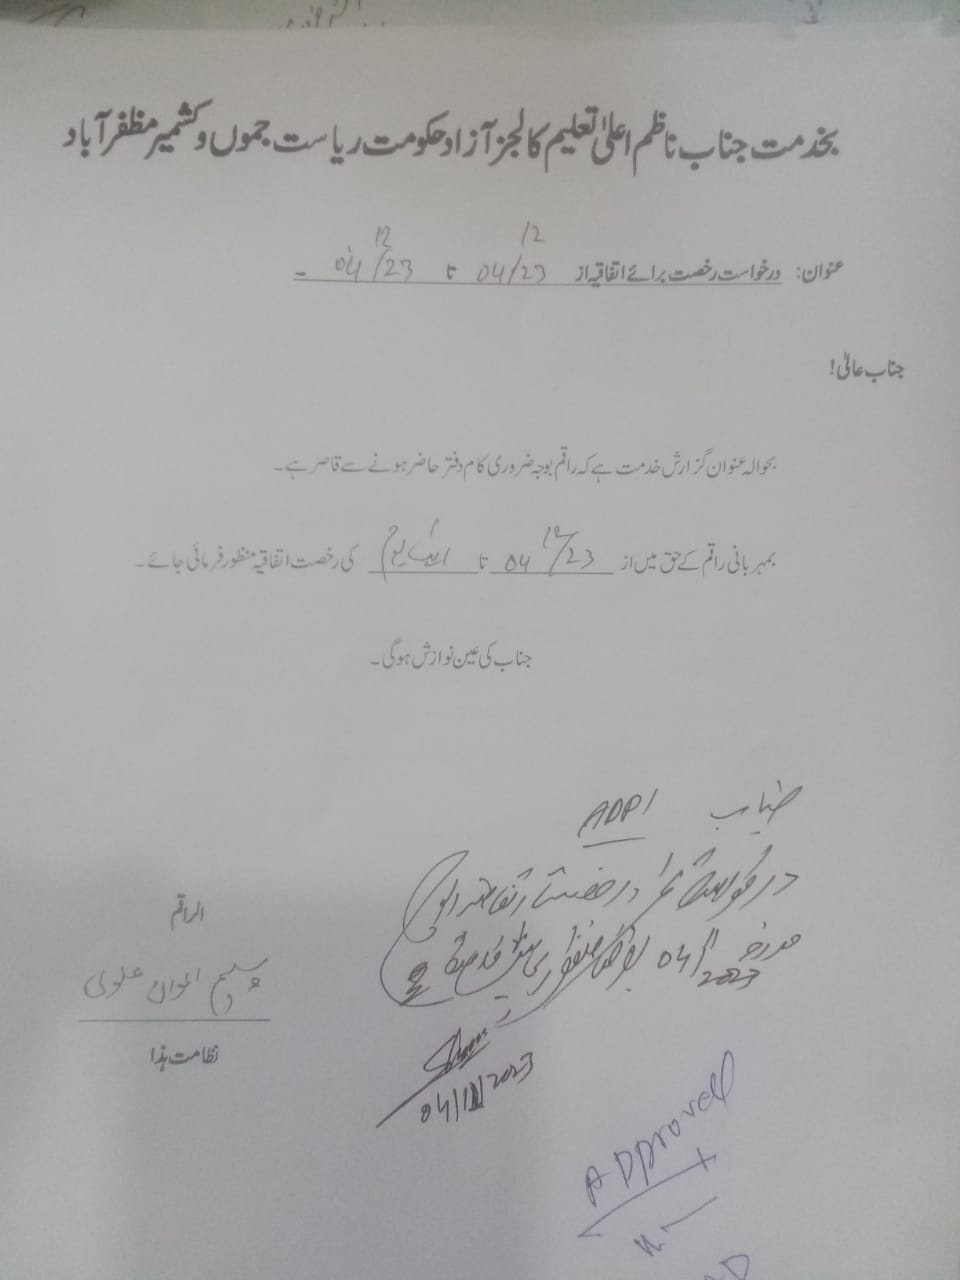 بخدمت جناب ناظم اعلیٰ تعلیم کالجز آزاد حکومت ریاست جموں و کشمیر مظفر آباد
عنوان: درخواست رخصت برائے اتفاقیہ از 04/12/23 تا 04/12/23 -
جناب عالیٰ!
بحوالہ عنوان گزارش خدمت ہے کہ راقم بوجہ ضروری کام دفتر حاضر ہونے سے قاصر ہے۔
بمہربانی راقم کے حق میں از 04/12/23 تا ایک یوم کی رخصت اتفاقیہ منظور فرمائی جائے۔
جناب کی عین نوازش ہوگی۔
جناب ADPI
درخواست رخصت اتفاقیہ
مورخہ 04 2023
الراقم
اعوان علوی
نظامت ہذا
2023
Approved